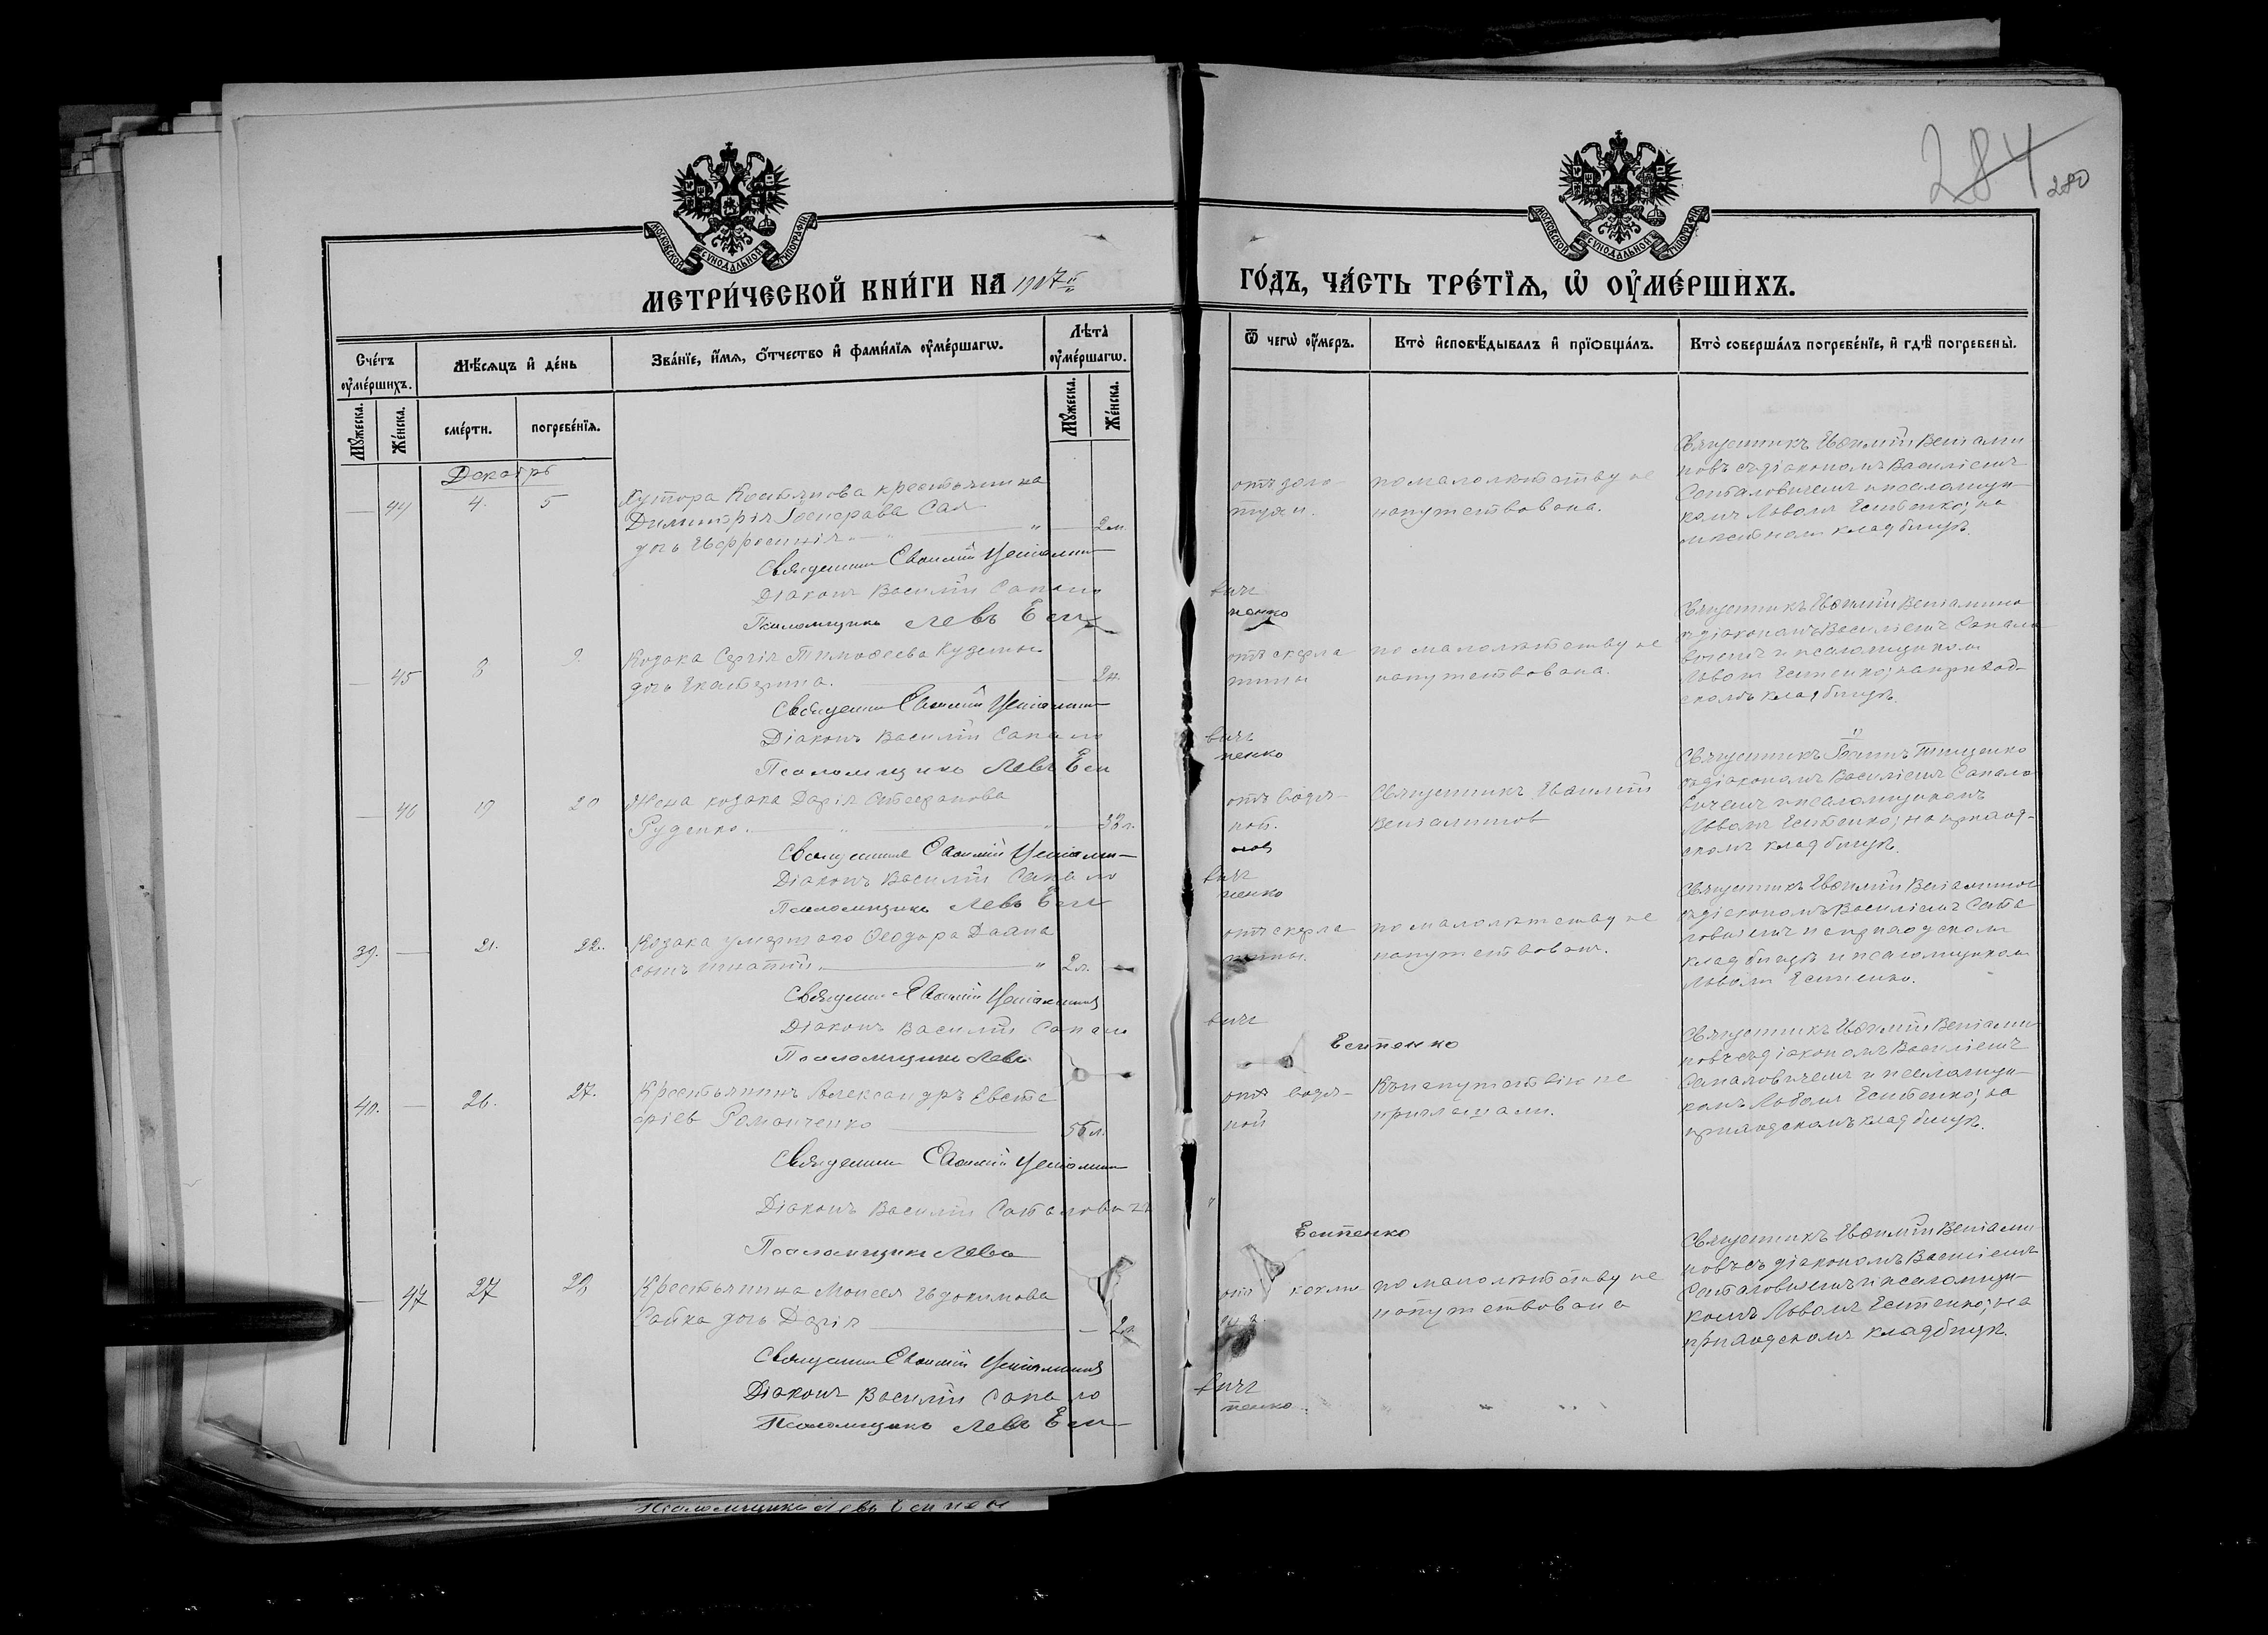 284 280
МОСКОВСКОЙ СУНОДАЛЬНОЙ ТИПОГРАФІИ
МОСКОВСКОЙ СУНОДАЛЬНОЙ ТИПОГРАФІИ
МЕТРИ́ЧЕСКОЙ КНИ́ГИ НА 1907й
ГО́ДЪ, ЧА́СТЬ ТРЕ́ТЇѦ, Ѡ҆ ОУ҆МЕ́РШИХЪ.
Сче́тъ оу҆ме́ршихъ.
Мꙋ́жеска.
Же́нска.
Мѣ́сѧцъ и҆ де́нь
сме́рти.
погребе́нїѧ.
Зва́нїе, и҆́мѧ, ѻ҆́тчество и҆ фами́лїѧ оу҆ме́ршагѡ.
Лѣта̀ оу҆ме́ршагѡ.
Мꙋ́жеска.
Же́нска.
Ѿ чегѡ̀ оу҆́меръ.
Кто̀ и҆сповѣ́дывалъ и҆ прїѻбща́лъ.
Кто̀ соверша́лъ погребе́нїе, и҆ гдѣ̀ погребены̀.
Декабрь
— 44 4. 5
Хутора Костянова крестьянина
Димитрія
дочь Евфросинія
2 м.
Священникъ Евѳимій Веніамин
Діаконъ Василій Сапало
вичъ
Псаломщикъ Левъ Еси
пенко
по малолѣтству не
напутствована.
Священникъ Евѳимій Веніами
новъ съ діакономъ Василіемъ
Сапаловичемъ и псаломщи-
комъ Львомъ Есипенко; на
кладбищѣ.
— 45 8 9.
Козака Сергія Тимоѳеева
дочь Екатерина.
Священникъ Евѳимій Веніамин
Діаконъ Василій Сапало
вичъ
Псаломщикъ Левъ Еси
пенко
отъ скарла
тины
по малолѣтству не
напутствована.
Священникъ Евѳимій Веніаминовъ
съ діакономъ Василіемъ Сапало
вичемъ и псаломщикомъ
Львомъ Есипенко; на приход-
скомъ кладбищѣ.
— 46 19 20
Жена козака Дарія Стефанова
Руденко.
Священникъ Евѳимій Веніами
новъ
Діаконъ Василій Сапало
вичъ
Псаломщикъ Левъ Еси
пенко
отъ водя-
ной.
Священникъ Евѳимій
Веніаминовъ
Священникъ Іоаннъ Тищенко
съ діакономъ Василіемъ Сапало
вичемъ и псаломщикомъ
Львомъ Есипенко; на приход-
скомъ кладбищѣ.
39. — 21. 22.
Козака умершаго Ѳеодора
сынъ Игнатій.
2 л.
Священникъ Евѳимій Веніаминовъ
Діаконъ Василій Сапало
вичъ
Псаломщикъ Левъ
Есипенко
отъ скарла
тины.
по малолѣтству не
напутствованъ.
Священникъ Евѳимій Веніаминовъ
съ діакономъ Василіемъ Сапа
ловичемъ на приходскомъ
кладбищѣ и псаломщикомъ
Львомъ Есипенко.
40. — 26. 27.
Крестьянинъ Александръ Евста
фіевъ Романченко
Священникъ Евѳимій Веніамин
Діаконъ Василій Сапаловичъ
Псаломщикъ Левъ
Есипенко
отъ водя-
ной
Къ напутствію не
приглашали.
Священникъ Евѳимій Веніами
новъ съ діакономъ Василіемъ
Сапаловичемъ и псаломщи-
комъ Львомъ Есипенко; на
приходскомъ кладбищѣ.
— 47 27 29
Крестьянина Моисея Евдокимова
Сайка дочь Дарія
Священникъ Евѳимій Веніаминовъ
Діаконъ Василій Сапало
вичъ
Псаломщикъ Левъ Еси
пенко
по малолѣтству не
напутствована
Священникъ Евѳимій Веніами
новъ съ діакономъ Василіемъ
Сапаловичемъ и псаломщи-
комъ Львомъ Есипенко; на
приходскомъ кладбищѣ.